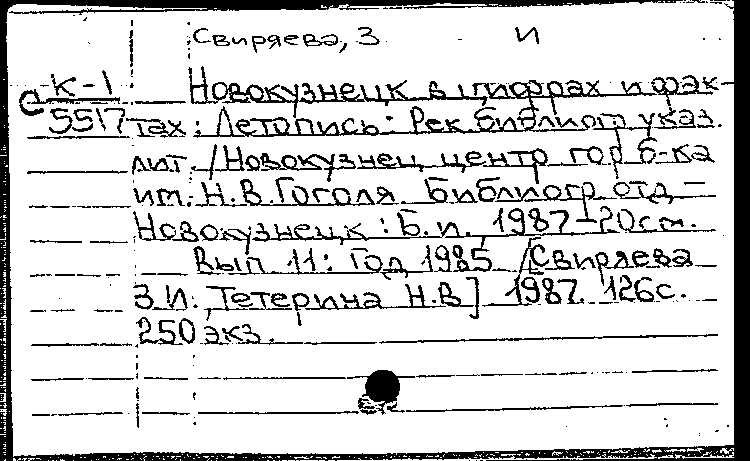 Свиряева, З И
С К-1 Новокузнецк в цифрах и фак-
5517 тах: Летопись: Рек. библиогр. указ.
лит. /Новокузнец. центр. гор. б-ка
им. Н.В.Гоголя. Библиогр. отд. -
Новокузнецк: Б.и., 1987-20см.
Вып. 11: Год 1985 /Свиряева
З.И., Тетерина Н.В] 1987. 126с.
250 экз.